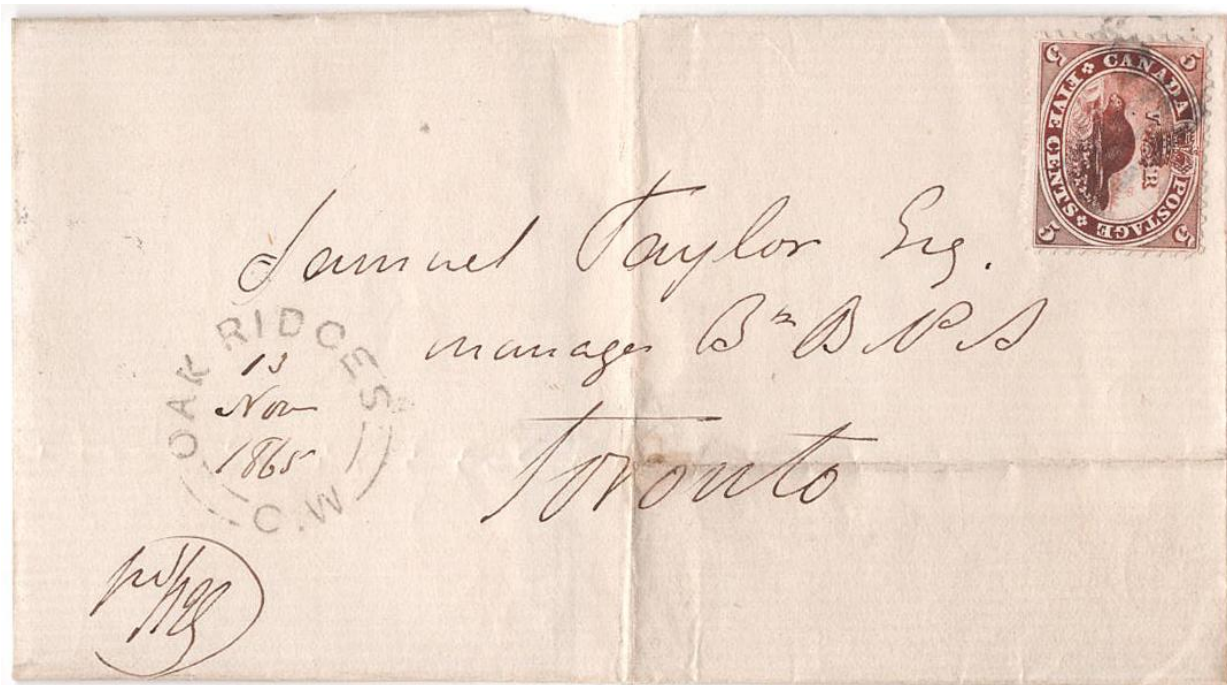 5 CANADA POSTAGE 5
5 FIVE CENTS 5
V R
Samuel Taylor Esq.
manager Bk B N A
Toronto
OAK RIDGES
13
Nov
1865
C.W